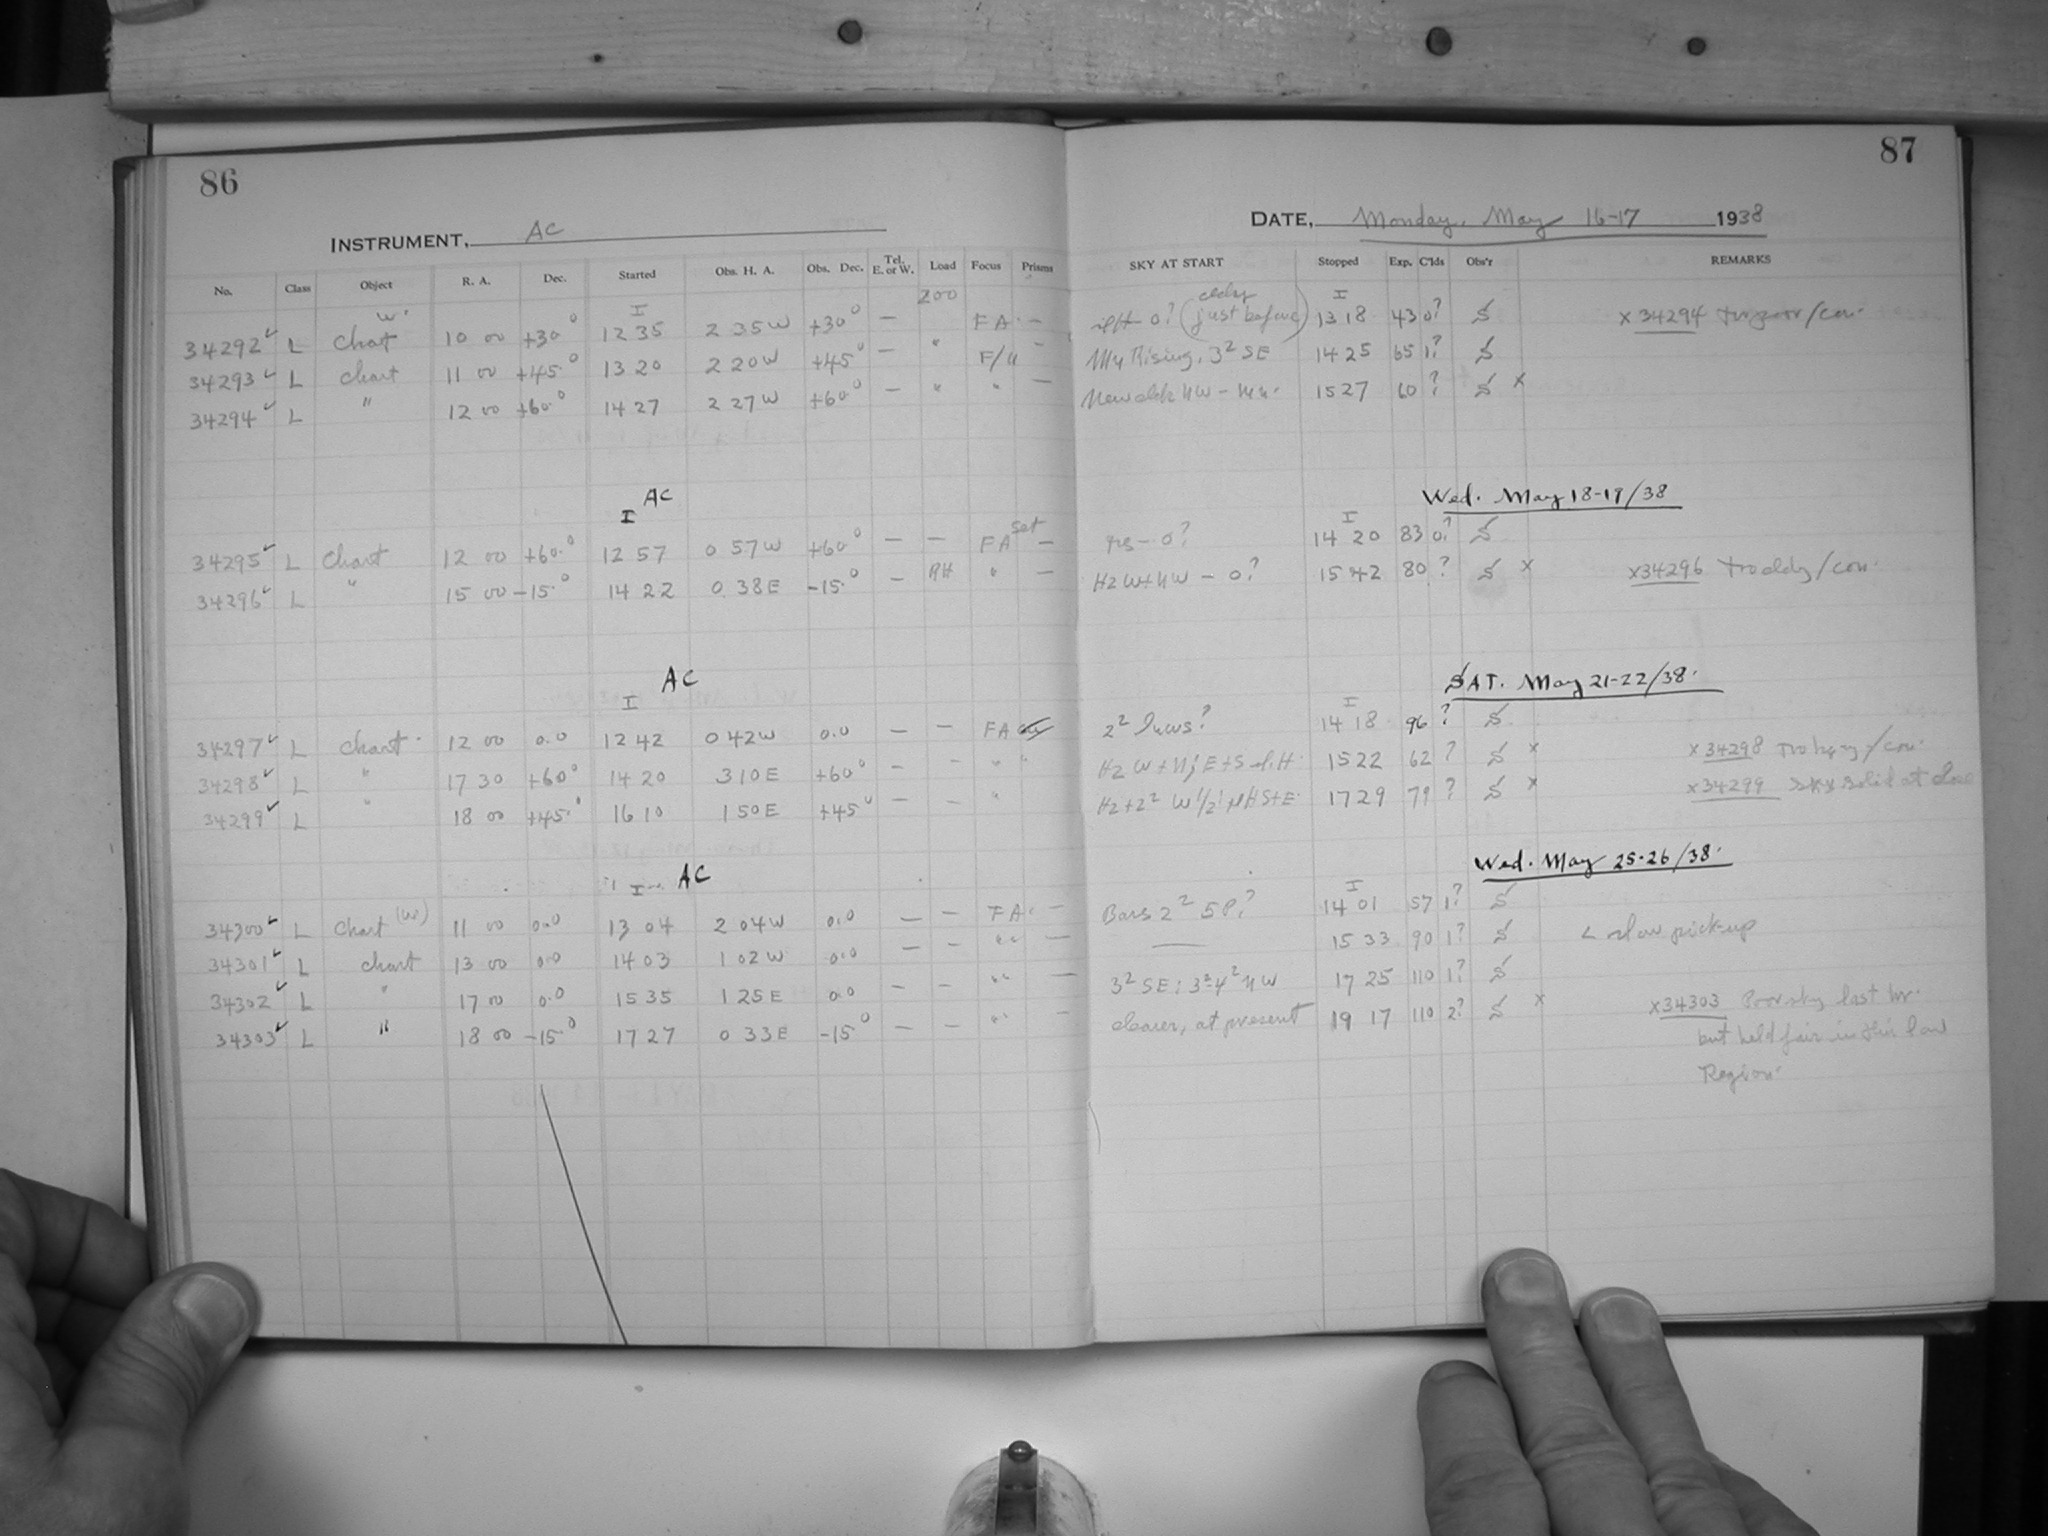 86
INSTRUMENT, AC
No. Class Object R. A. Dec. Started Obs. H. A. Obs. Dec. Tel. E. or W. Load Focus Prisms
W. I 200
34292 ✓ L Chart 10 00 +30° 12 35 2 35 W +30° — FA. —
34293 ✓ L chart 11 00 +45° 13 20 2 20 W +45° — " F/A —
34294 ✓ L " 12 00 +60° 14 27 2 27 W +60° — " " —
AC
I
34295 ✓ L Chart 12 00 +60.° 12 57 0 57 W +60° — — FA set —
34296 ✓ L " 15 00 -15.° 14 22 0 38 E -15.° — RH " —
AC
I
34297 ✓ L chart. 12 00 0.0 12 42 0 42 W 0.0 — — FA
34298 ✓ L " 17 30 +60° 14 20 3 10 E +60° — — " "
34299 ✓ L " 18 00 +45.° 16 10 1 50 E +45° — — "
I AC
34300 ✓ L Chart (W) 11 00 0.0 13 04 2 04 W 0.0 — — FA. —
34301 ✓ L chart 13 00 0.0 14 03 1 02 W 0.0 — — " —
34302 ✓ L " 17 00 0.0 15 35 1 25 E 0.0 — — " —
34303 ✓ L " 18 00 -15° 17 27 0 33 E -15° — — " —
87
DATE, Monday, May 16-17 1938
SKY AT START Stopped Exp. C'lds Obs'r REMARKS
I
0? (cldy just before) 13 18 43 0? S x 34294 /con.
Rising, 3² SE 14 25 65 1? S
NW — 15 27 60 ? S x
Wed. May 18-19/38
I
0? 14 20 83 0? S
Hz W + NW — 0? 15 42 80 ? S x x34296 /con.
SAT. May 21-22/38.
I
2² ? 14 18 96 ? S
Hz W + N; E + S 15 22 62 ? S x x 34298 /con.
Hz + 2² W 1/2; S+E. 17 29 79 ? S x x 34299 Sky solid at close
Wed. May 25-26/38.
I
Bars 2² SP? 14 01 57 1? S
—— 15 33 90 1? S < slow pick-up
3² SE; 3²-4² NW 17 25 110 1? S
clearer, at present 19 17 110 2? S x x34303 Poor sky last hr.
but held fair in this low
Region.